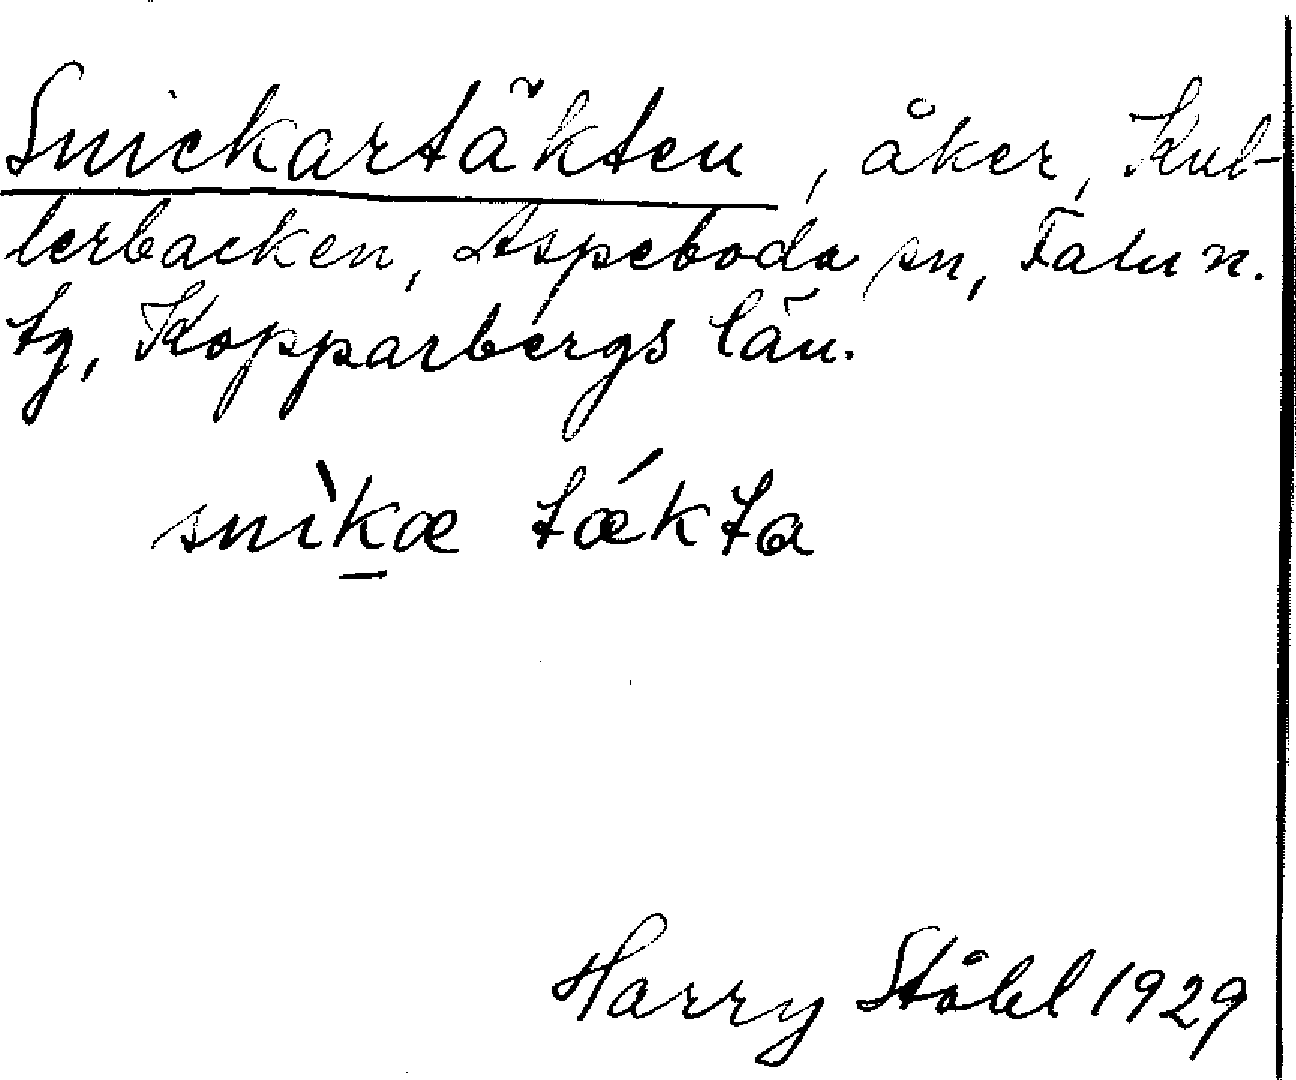 Snickartäkten, åker, Kub-
lerbacken, Aspeboda sn, Falun.
tg, Kopparbergs län.
snìkæ tǽkta
Harry Ståhl 1929